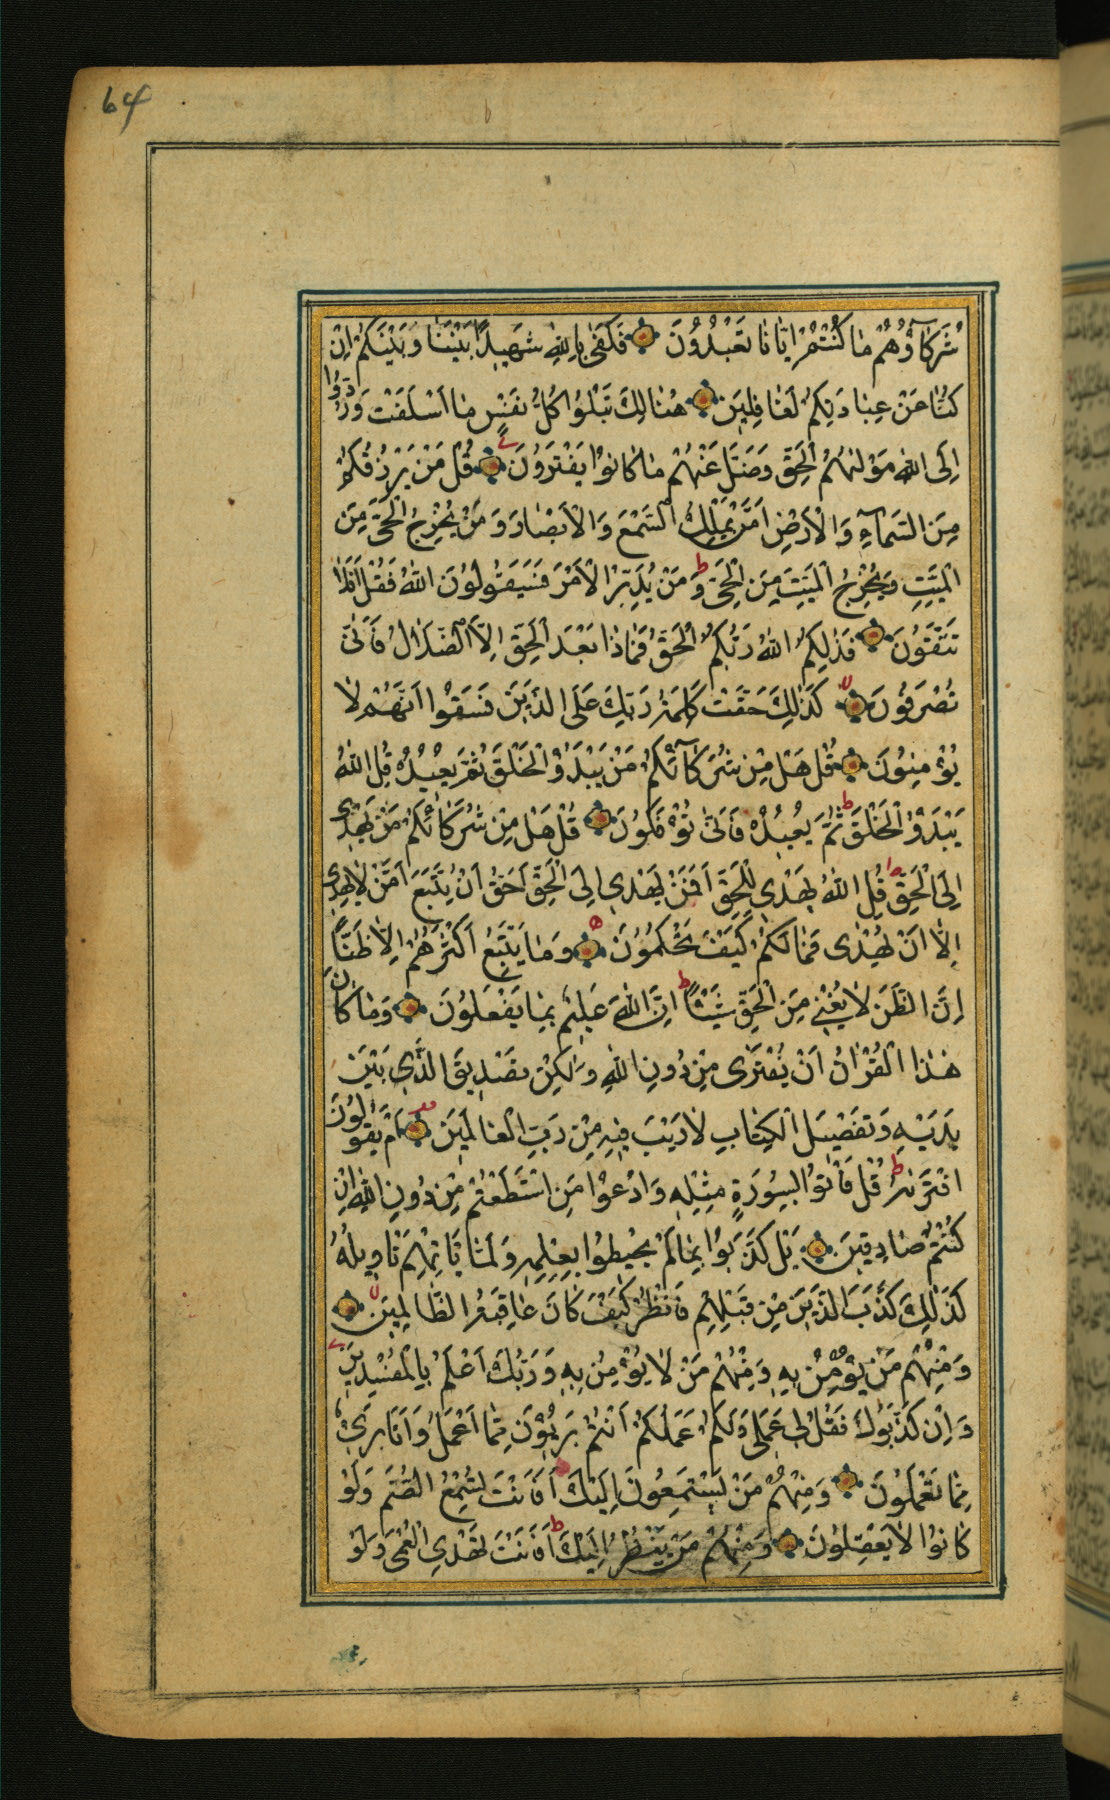 64
شُرَكَآؤُهُمْ مَا كُنْتُمْ اِيَّانَا تَعْبُدُونَ فَكَفٰى بِاللهِ شَهِيدًا بَيْنَنَا وَبَيْنَكُمْ اِنْ
كُنَّا عَنْ عِبَادَتِكُمْ لَغَافِلِينَ هُنَالِكَ تَبْلُوا كُلُّ نَفْسٍ مَا اَسْلَفَتْ وَرُدُّوا
اِلَى اللهِ مَوْلٰهُمُ الْحَقِّ وَضَلَّ عَنْهُمْ مَا كَانُوا يَفْتَرُونَ قُلْ مَنْ يَرْزُقُكُمْ
مِنَ السَّمَآءِ وَالْاَرْضِ اَمَّنْ يَمْلِكُ السَّمْعَ وَالْاَبْصَارَ وَمَنْ يُخْرِجُ الْحَيَّ مِنَ
الْمَيِّتِ وَيُخْرِجُ الْمَيِّتَ مِنَ الْحَيِّ ط وَمَنْ يُدَبِّرُ الْاَمْرَ فَسَيَقُولُونَ اللهُ فَقُلْ اَفَلَا
تَتَّقُونَ فَذٰلِكُمُ اللهُ رَبُّكُمُ الْحَقُّ فَمَاذَا بَعْدَ الْحَقِّ اِلَّا الضَّلَالُ فَاَنّٰى
تُصْرَفُونَ كَذٰلِكَ حَقَّتْ كَلِمَةُ رَبِّكَ عَلَى الَّذِينَ فَسَقُوا اَنَّهُمْ لَا
يُؤْمِنُونَ قُلْ هَلْ مِنْ شُرَكَآئِكُمْ مَنْ يَبْدَؤُا الْخَلْقَ ثُمَّ يُعِيدُهُ قُلِ اللهُ
يَبْدَؤُا الْخَلْقَ ط ثُمَّ يُعِيدُهُ فَاَنّٰى تُؤْفَكُونَ قُلْ هَلْ مِنْ شُرَكَائِكُمْ مَنْ يَهْدِى
اِلَى الْحَقِّ قُلِ اللهُ يَهْدِى لِلْحَقِّ اَفَمَنْ يَهْدِى اِلَى الْحَقِّ اَحَقُّ اَنْ يُتَّبَعَ اَمَّنْ لَا يَهِدِّى
اِلَّا اَنْ يُهْدٰى فَمَا لَكُمْ كَيْفَ تَحْكُمُونَ وَمَا يَتَّبِعُ اَكْثَرُهُمْ اِلَّا ظَنًّا
اِنَّ الظَّنَّ لَا يُغْنِى مِنَ الْحَقِّ شَيْئًا ط اِنَّ اللهَ عَلِيمٌ بِمَا يَفْعَلُونَ وَمَا كَانَ
هٰذَا الْقُرْاٰنُ اَنْ يُفْتَرٰى مِنْ دُونِ اللهِ وَلٰكِنْ تَصْدِيقَ الَّذِى بَيْنَ
يَدَيْهِ وَتَفْصِيلَ الْكِتَابِ لَا رَيْبَ فِيهِ مِنْ رَبِّ الْعَالَمِينَ اَمْ يَقُولُونَ
افْتَرٰيهُ ط قُلْ فَأْتُوا بِسُورَةٍ مِثْلِهِ وَادْعُوا مَنِ اسْتَطَعْتُمْ مِنْ دُونِ اللهِ اِنْ
كُنْتُمْ صَادِقِينَ بَلْ كَذَّبُوا بِمَا لَمْ يُحِيطُوا بِعِلْمِهِ وَلَمَّا يَاْتِهِمْ تَاْوِيلُهُ
كَذٰلِكَ كَذَّبَ الَّذِينَ مِنْ قَبْلِهِمْ فَانْظُرْ كَيْفَ كَانَ عَاقِبَةُ الظَّالِمِينَ
وَمِنْهُمْ مَنْ يُؤْمِنُ بِهِ وَمِنْهُمْ مَنْ لَا يُؤْمِنُ بِهِ وَرَبُّكَ اَعْلَمُ بِالْمُفْسِدِينَ
وَاِنْ كَذَّبُوكَ فَقُلْ لِى عَمَلِى وَلَكُمْ عَمَلُكُمْ اَنْتُمْ بَرِيؤُنَ مِمَّا اَعْمَلُ وَاَنَا بَرِىءٌ
مِمَّا تَعْمَلُونَ وَمِنْهُمْ مَنْ يَسْتَمِعُونَ اِلَيْكَ اَفَاَنْتَ تُسْمِعُ الصُّمَّ وَلَوْ
كَانُوا لَا يَعْقِلُونَ وَمِنْهُمْ مَنْ يَنْظُرُ اِلَيْكَ ط اَفَاَنْتَ تَهْدِى الْعُمْىَ وَلَوْ